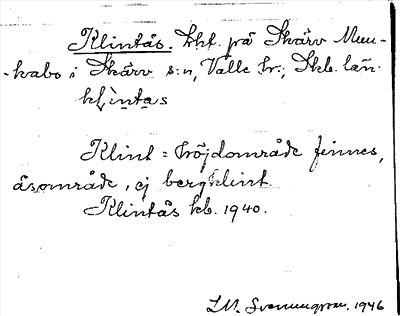 Klintås. Lht. på Skärv Mun-
-kabo i Skärv s:n, Valle hr., Skb. län.
kli̯ntas
Klint = höjdområde finnes,
åsområde, ej bergklint.
Klintås kb. 1940.
I.M. Svenungsson. 1946